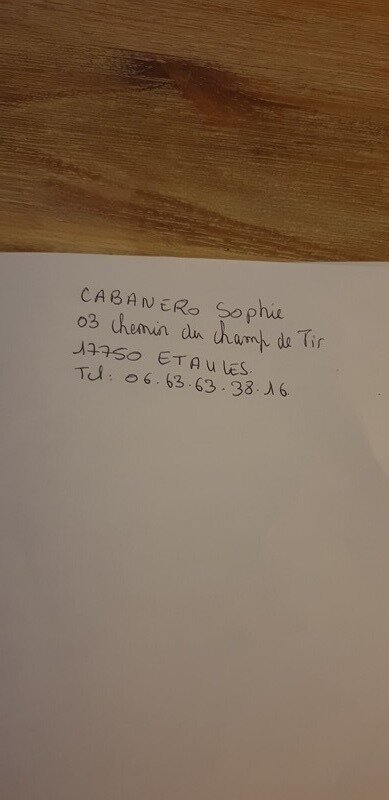 CABANERO Sophie
03 chemin du champ de Tir
17750 ETAULES
Tel: 06.63.63.38.16